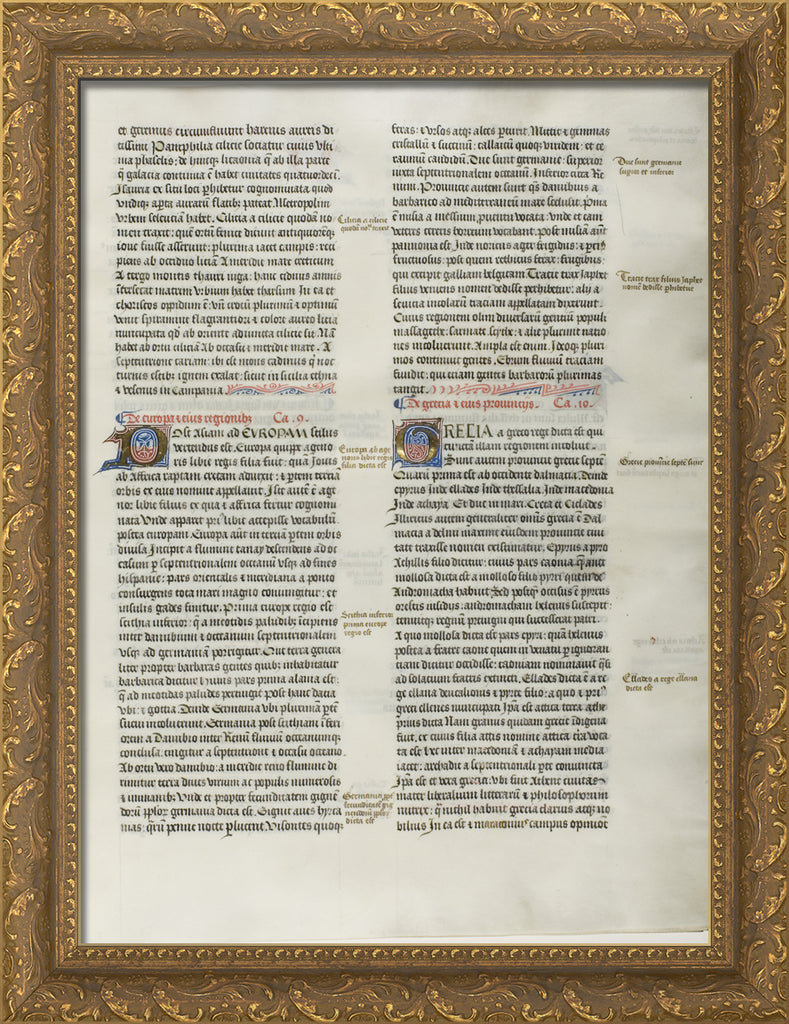 et geminus circumfluunt harenis aureis di
tissimi Pamphilia cilicie sociatur cuius vlti
ma phaselis: de hincq; litaonia q̄ ab illa parte
q̄ galacia continua ē habet ciuitates quatuordeci.
Isauria ex situ loci p̱hibetur cognominata quod
vndiq; apta aurarū flatib; pateat Metropolim
vrbem seleucia habet. Cilicia a cilice quodā no
men traxit: quē ortū fenice dicunt antiquiorēq;
ioue fuisse asserūt: plurima iacet campis: reci
piens ab occiduo liciā A meridie mare creticum
A tergo montis thauri iuga: hanc cidnus amnis
īterfecat matrem vrbium habet tharsum In ea et
choriscos oppidum ē: vn̄ crocū plurimū et optimū
venit spiramine flagrantiori et colore aureo licia
nuncupata qd ab oriente adiuncta cilicie sit. Nā
habet ab ortu ciliciā Ab occasu et meridie mare. A
septentrione cariam: ibi est mons cadinus q̄ noc
turnis estib; ignem exalat: sicut in sicilia ethna
et vesenus in Campania.
De europa et eius regionib; Ca. 9.
POst Asiam ad EVROPAM stilus
vertendus est. Europa quippe ageno
ris libie regis filia fuit: quā Jouis
ab Affrica raptam cretam aduexit: et ptem tercia
orbis ex eius nomine appellauit. Iste autē ē age
nor libie filius ex qua et affrica fertur cognomi
nata Vnde apparet pri libie accepisse vocabulū
postea europam. Europa aūt in tercia ptem orbis
diuisa Incipit a flumine tanay descendens ad oc
casum p septentrionalem oceanū vsq; ad fines
hispanie: pars orientalis et meridiana a ponto
consurgens tota mari magno coniungitur: et
insulis gades finitur. Prima europe regio est
scithia inferior: q̄ a meotidis paludib; īcipiens
inter danubium et oceanum septentrionalem
vsq; ad germaniā porrigitur. Que terra genera
liter propter barbaras gentes quib; inhabitatur
barbarica dicitur huius pars prima alania est:
q̄ ad meotidas paludes pertingit post hanc dacia
vbi: et gottia. Deinde Germania vbi plurimā ptē
sueui incoluerunt. Germania post scithiam īferi
orem a Danubio inter Renū fluuiū oceanumque
conclusa. cingitur a septentrione et occasu oceano.
Ab ortu vero danubio: a meridie reno flumine di
rimitur terra diues virum ac populis numerosis
et immanib; Vnde et propter fecunditatem gigne
dorū pplor germania dicta est. Gignit aues hyrca
nias: qrū penne nocte plucent. Visontes quoq;
feras: et vrsos atq; alces pturit. Mittit et gemmas
cristallū et succinū: callaicū quoq; viridem: et ce
raunium candidum. Due sunt germanie: superior
iuxta septentrionalem oceanum. Inferior citra Re
num. Prouincie autem sunt qs danubius a
barbarico ad mediterraneū mare secludit. Prima
ē misia a messium puentu vocata: vnde et eam
veteres cereris horreum vocabant. post misiam aūt
pannonia est Inde noricus ager frigidus: et pcius
fructuosus: post quem rethicus ferax: frugibus:
qui excipit galliam belgicam Tracie tirax Japhet
filius veniens nomen dedisse perhibetur: alij a
seuicia incolarū traciam appellatam dixerunt.
Cuius regionem olim diuersarū gentiū populi
massagethe: sarmate: scythe: et alie plurime natio
nes incoluerunt. Ampla est enim. Ideoq; pluri
mos continuit gentes. Ebrum fluuiū traciam
fundit: qui eciam gentes barbarorū plurimas
tangit.
De grecia et eius prouincijs. Ca. 10.
GRECIA a greco rege dicta est qui
cunctā illam regionem incoluit.
Sunt autem prouincie grecie septē
Quarū prima est ab occidente dalmacia. Deinde
epyrus Inde ellades Inde thessalia. Inde macedonia
Inde achaya. Et due in mari. Creta et Ciclades
Illiricus autem generaliter omīs grecia ē Dal
macia a delmi maxime eiusdem prouincie ciui
tate traxisse nomen existimatur. Epyrus a pyro
Achillis filio dicitur: cuius pars caonia q̄ ante
molossa dicta est a molosso filio pyrri quem de
Andromacha habuit Sed postq̄ occisus ē pyrrus
orestis insidijs: andromacham helenus suscepit:
tenuitq; regnum preuigni qui successerat patri.
A quo molossa dicta est pars epyri: quā helenus
postea a fratre caone quem in venatu p ignoran
ciam dicitur occidisse: caoniam nominauit q̄si
ad solacium fratris extincti. Ellades dicta ē a re
ge ellana deucalionis et pyrre filio: a quo et pri
greci ellines nuncupati Ipa est attica terra athe
prius dicta Nam granus quidam grecie īdigena
fuit. ex cuius filia attis nomine attica est voca
ta est hec inter macedoniā et achayam media
iacet: archadie a septentrionali pte coniuncta
Ipa est et vera grecia: vbi fuit Athene ciuitas
mater liberalium litterarū et philosophorum
nutrix: q̄ nichil habuit grecia clarius atq; no
bilius In ea est et maratonius campus opinioe
Cilicia a cilicie
quodā noīe traxit
Europa ab age
noris libie regis
filia dicta est
Scithia inferior
prima europe
regio est
Germania ppt
fecunditatē gig
nendorū pplor
dicta est
Due sunt germanie
supior et inferior
Tracie tirax filius Japhet
nomen dedisse phibetur
Grecie prouincie septē sunt
Ellades a rege ellana
dicta est